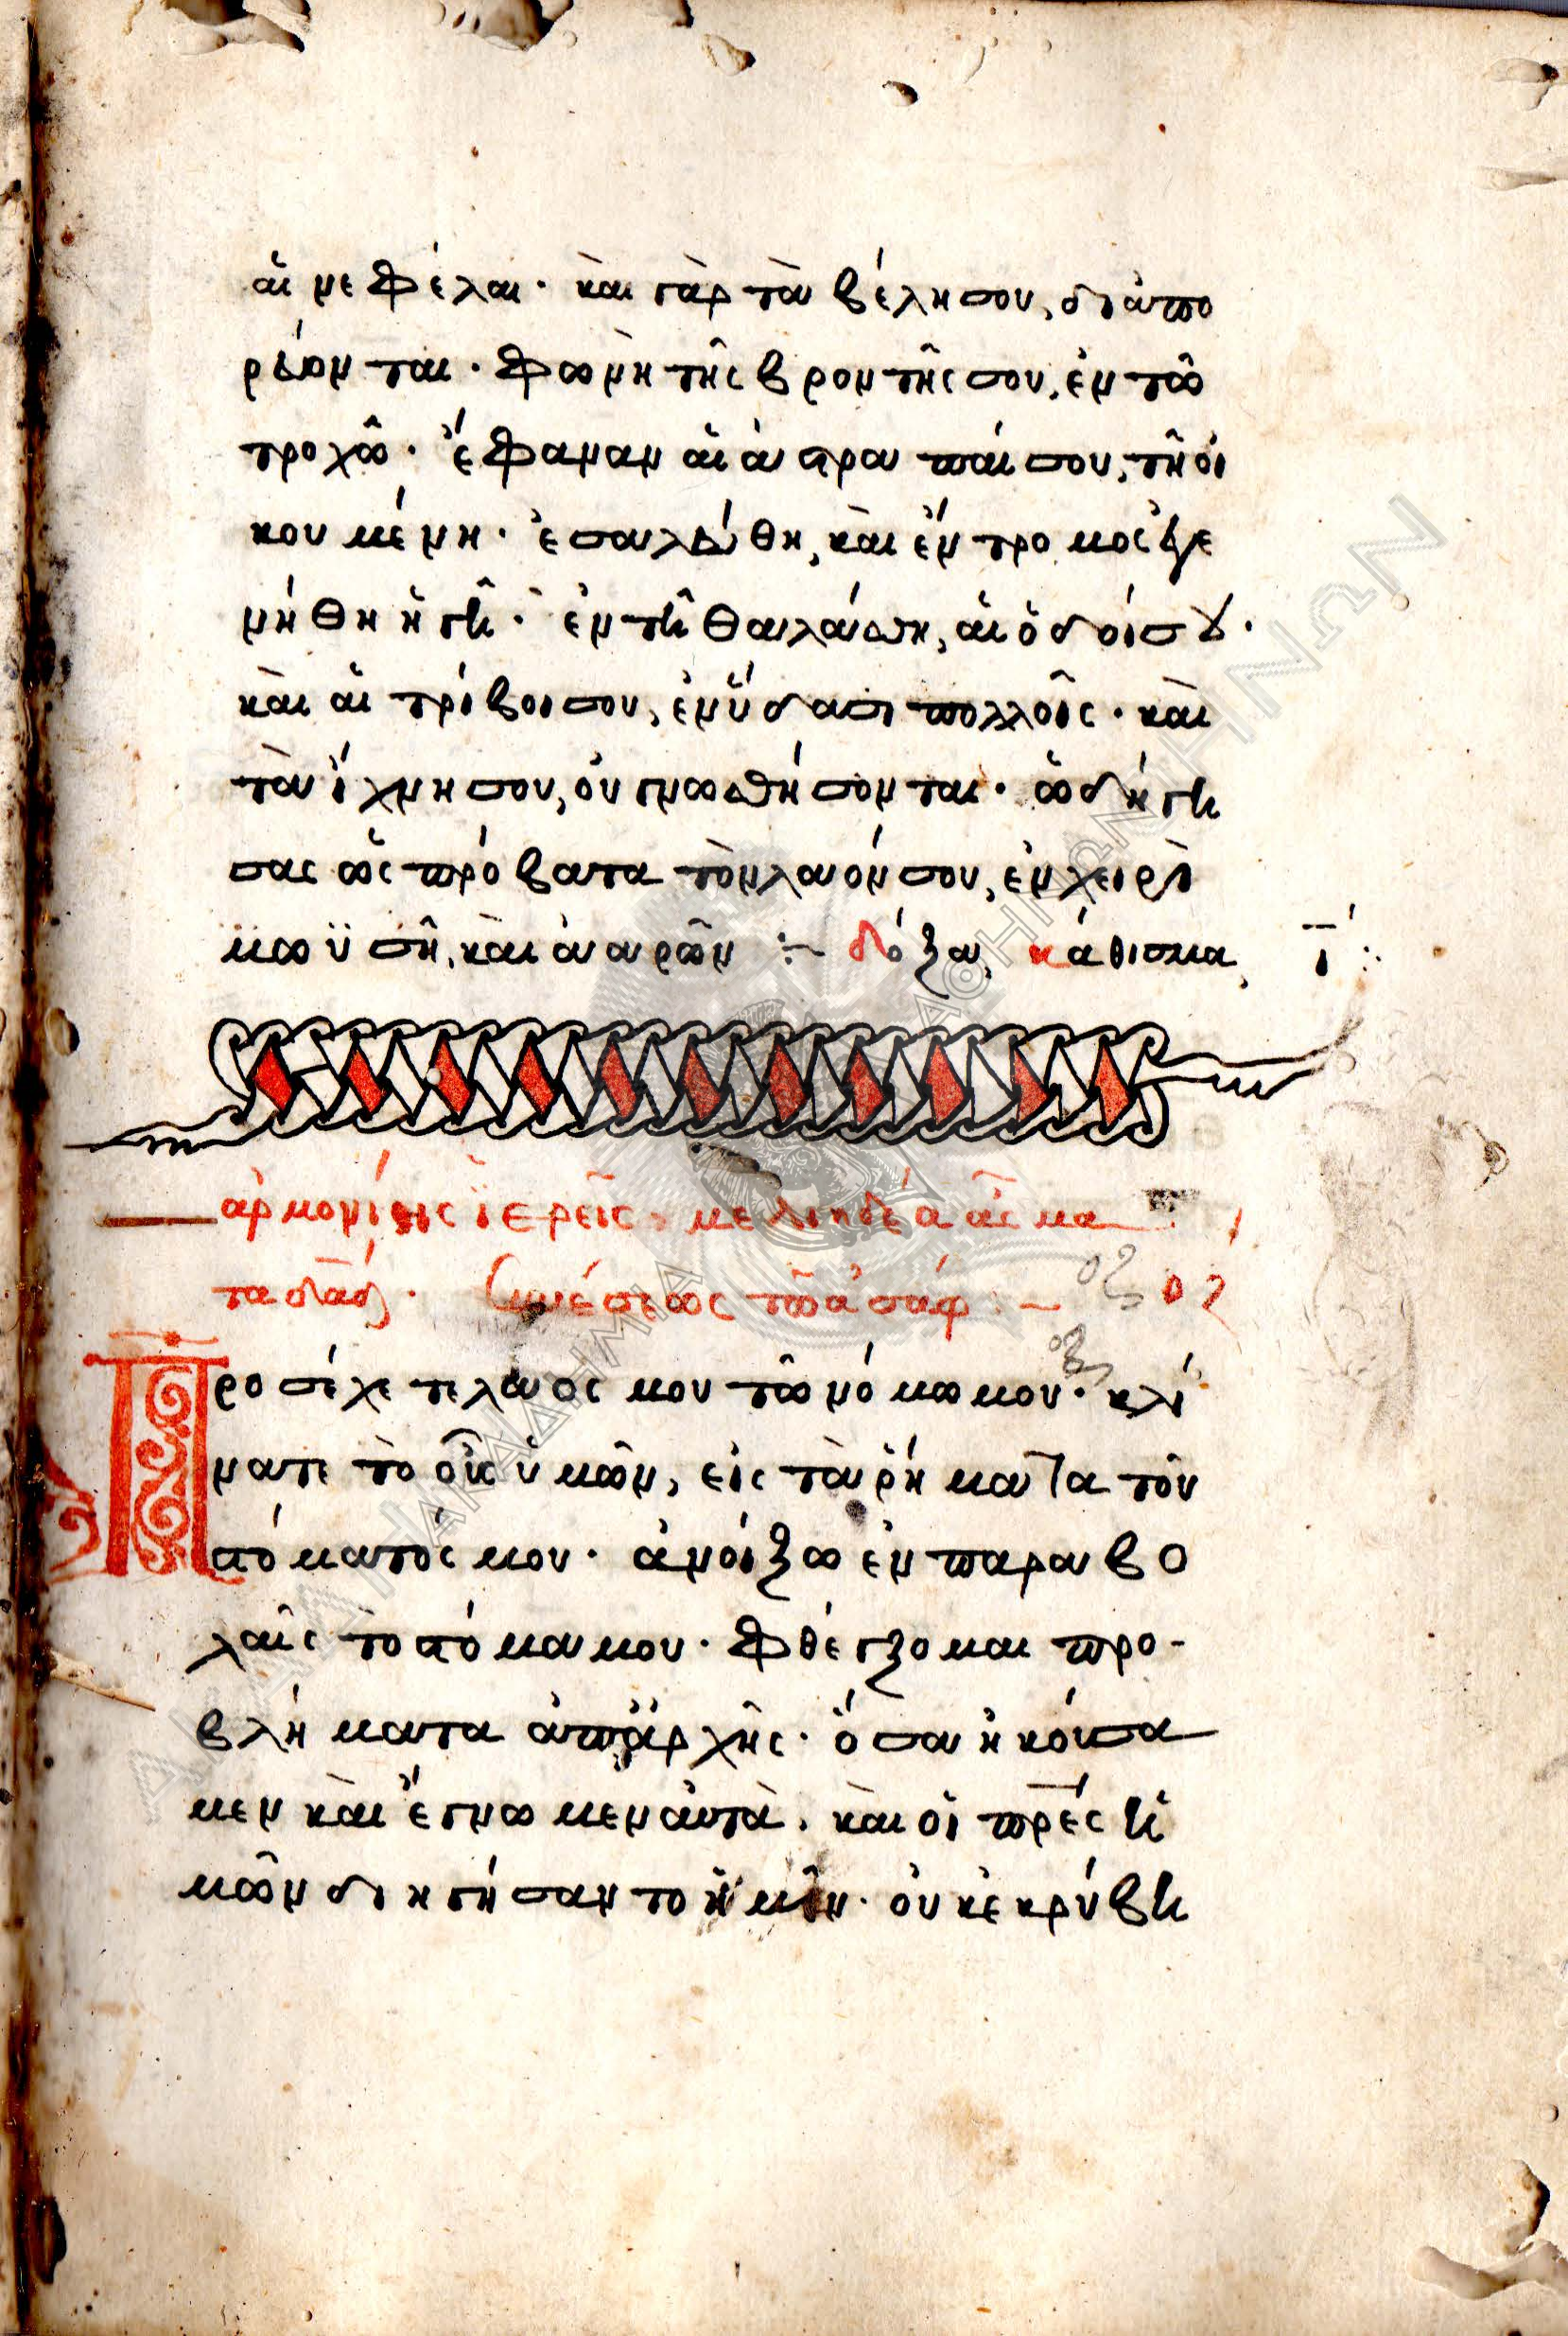 αἱ νεφέλαι· καὶ γὰρ τὰ βέλη σου, διαπο
ρεύονται· φωνὴ τῆς βροντῆς σου, ἐν τῶ
τροχῶ· ἔφαναν αἱ ἀστραπαί σου, τῆ οἰ
κουμένη· ἐσαλεύθη, καὶ ἔντρομος ἐγε
νήθη ἡ γῆ· ἐν τῆ θαλάσση, αἱ ὁδοί σου·
καὶ αἱ τρίβοι σου, ἐν ὕδασι πολλοῖς· καὶ
τὰ ἴχνη σου, οὐ γνωσθήσονται· ὡδήγη
σας ὡς πρόβατα τὸν λαόν σου, ἐν χειρὶ
μωϋσῆ, καὶ ἀαρῶν :~ δόξα, κάθισμα, ι΄:
ἁρμονίης ἱερεῖς, μελιηδέα ἄσμα
τα δᾱδ· Συνέσεως τῶ ἀσάφ :~ οζ
Προσέχετε λαός μου τῶ νόμω μου· κλί
νατε τὸ οὖς ὑμῶν, εἰς τὰ ῥήματα τοῦ
στόματός μου· ἀνοίξω ἐν παραβο
λαῖς τὸ στόμα μου· φθέγξομαι προ-
βλήματα ἀπ᾽ ἀρχῆς· ὅσα ἠκούσα
μεν καὶ ἔγνωμεν αὐτὰ, καὶ οἱ πρ̅ες ἡ
μῶν διηγήσαντο ἡμῖν· οὐκ ἐκρύβη